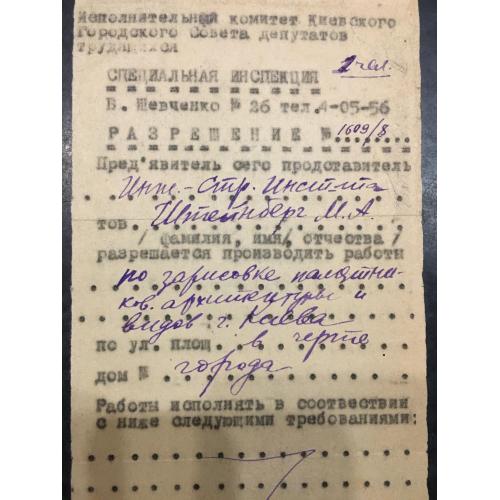 Исполнительный комитет Киевского
Городского Совета депутатов
трудящихся
СПЕЦИАЛЬНАЯ ИНСПЕКЦИЯ 1 чел.
Б. Шевченко № 26 тел. 4-05-56
РАЗРЕШЕНИЕ № 1609/8
Пред'явитель сего продставитель
Инж.-Стр. Инстита
тов. Штейнберг М.А.
/ фамилия, имя/ отчества /
разрешается производить работы
по зарисовке памятни-
ков архитектуры и
видов г. Киева
по ул. площ. в черте
дом № города
Работы исполнять в соотвествии
с ниже следующими требованиями: